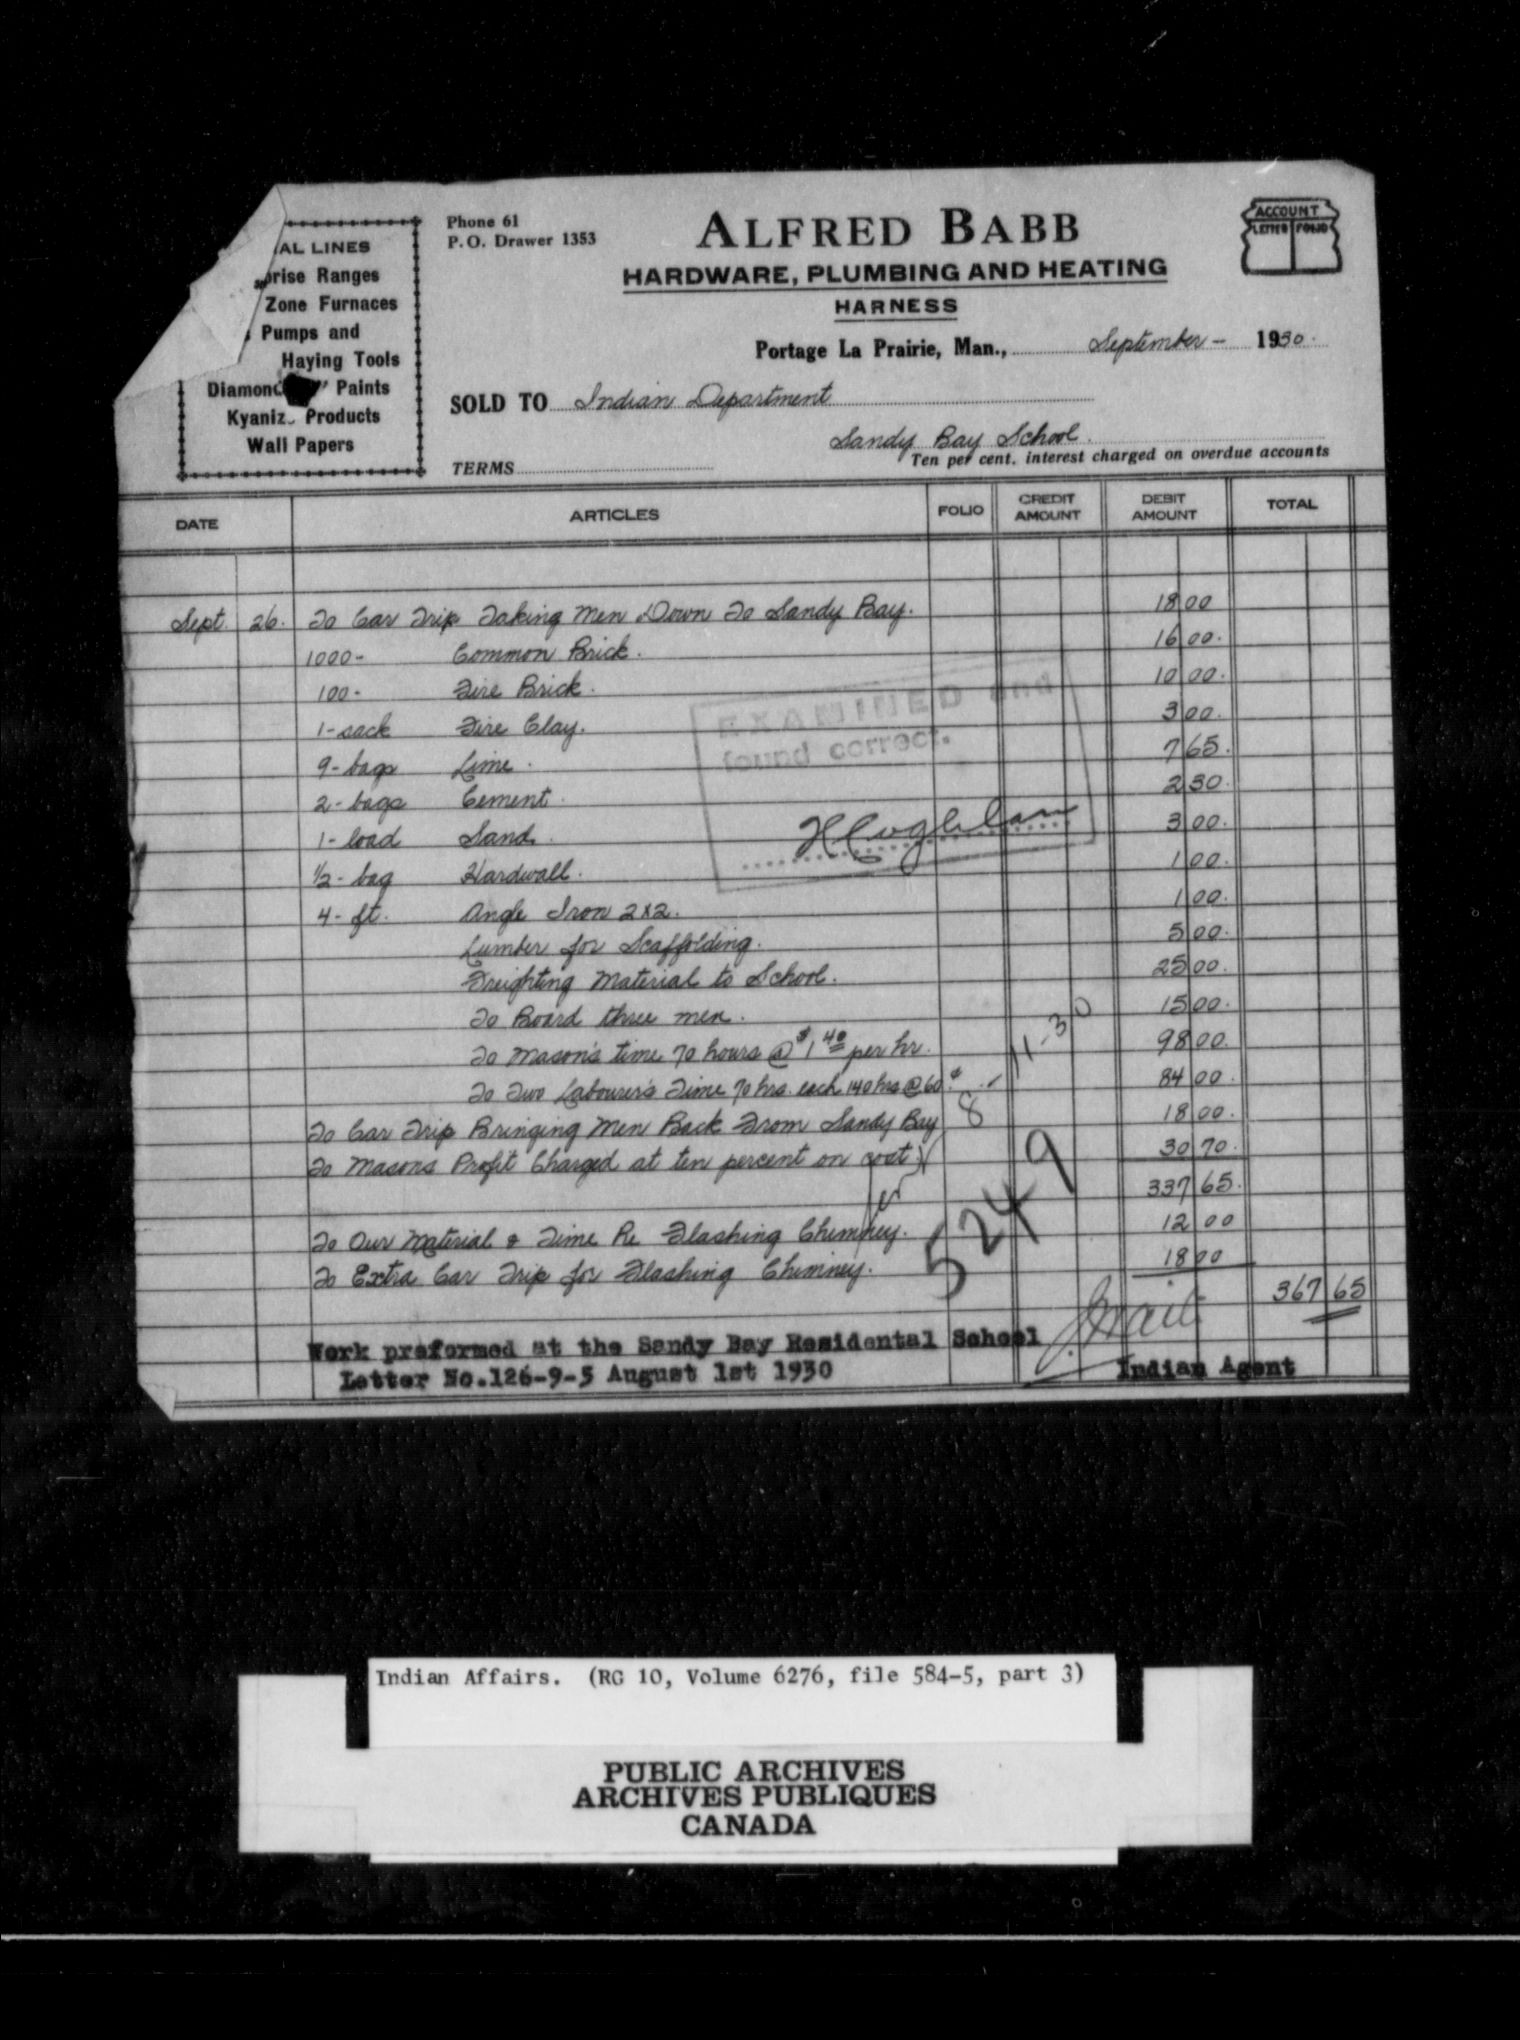 AL LINES
prise Ranges
Zone Furnaces
Pumps and
Haying Tools
Paints
Products
Wall Papers
Phone 61
P.O. Drawer 1353
ALFRED BABB
HARDWARE, PLUMBING AND HEATING
HARNESS
ACCOUNT
LETTER FOLIO
Portage La Prairie, Man., September - 1930.
SOLD TO Indian Department
Sandy Bay School.
TERMS
Ten per cent. interest charged on overdue accounts
DATE ARTICLES FOLIO CREDIT AMOUNT DEBIT AMOUNT TOTAL
Sept. 26. To Car Trip Taking Men Down To Sandy Bay. 18 00
1000- Common Brick. 16 00.
100- Fire Brick. 10 00.
1-sack Fire Clay. 3 00.
9-bags Lime. 7 65.
2-bags Cement. 2 30.
1-load Sand. 3 00.
1/2-bag Hardwall. 1 00.
4-ft. Angle Iron 2x2. 1 00.
Lumber for Scaffolding. 5 00.
Freighting Material to School. 25 00.
To Board three men. 15 00.
To Mason's time 70 hours @ $1 40 per hr. 98 00.
To Two Labourer's Time 70 hrs. each 140 hrs @ 60¢. 84 00.
To Car Trip Bringing Men Back From Sandy Bay 18 00.
To Masons Profit Charged at ten percent on cost. 30 70.
337 65.
To Our Material & Time Re Flashing Chimney. 12 00
To Extra Car Trip for Flashing Chimney. 18 00
367 65
EXAMINED and
found correct.
11-30
8
5249
Work preformed at the Sandy Bay Residental School
Letter No.126-9-5 August 1st 1930
Indian Agent
Indian Affairs. (RG 10, Volume 6276, file 584-5, part 3)
PUBLIC ARCHIVES
ARCHIVES PUBLIQUES
CANADA